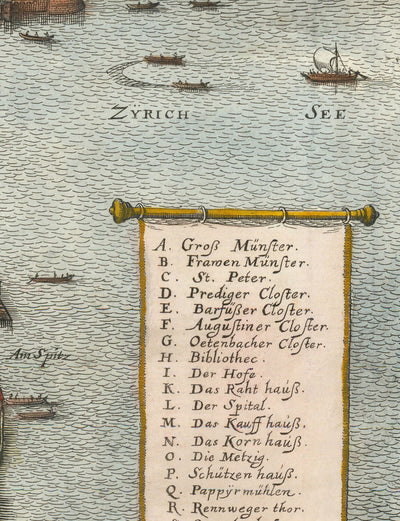 ZŸRICH SEE
A. Groß Münſter.
B. Frawen Münſter.
C. St. Peter.
D. Prediger Cloſter.
E. Barfüßer Cloſter.
F. Auguſtiner Cloſter.
G. Oetenbacher Cloſter.
H. Bibliothec.
I. Der Hofe.
Am Spitz
K. Das Raht hauß.
L. Der Spital.
M. Das Kauff hauß.
N. Das Korn hauß.
O. Die Metzig.
P. Schützen hauß.
Q. Pappÿrmühlen.
R. Rennweger thor.